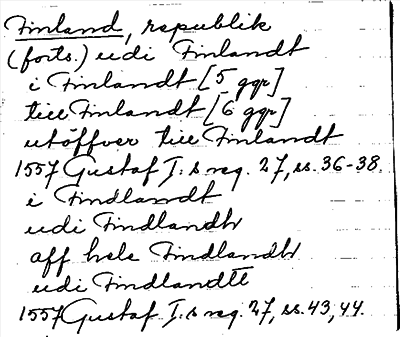 Finland, republik
(forts.) udi Finlandt
i Finlandt [5 ggr]
till Finlandt [6 ggr]
utöffver till Finlandt
1557 Gustaf I.s reg. 27, ss. 36-38.
i Findlandt
udi Findlandh
aff hele Findlandh
udi Findlandtt
1557 Gustaf I.s reg. 27, ss. 43, 44.